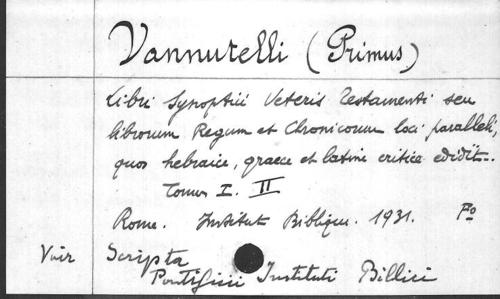 Vannutelli (Primus)
Libri Synoptici Veteris Testamenti seu
librorum Regum et Chronicorum loci paralleli,
quos hebraice, graece et latine critice edidit..
Tomus I. II
Rome. Institut Biblique. 1931. Fo
Voir Scripta
Pontificii Instituti Biblici